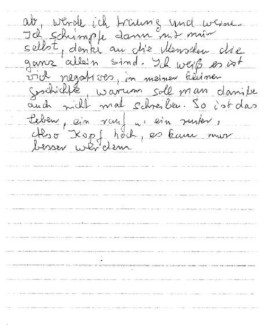 ab, werde ich traurig und weine.
Ich schimpfe dann mit mir
selbst, denke an die Menschen die
ganz allein sind. Ich weiß es ist
viel negatives, in meiner kleinen
Geschichte, warum soll man darüber
auch nicht mal schreiben. So ist das
Leben, ein rauf u. ein runter,
also Kopf hoch, es kann nur
besser werden.